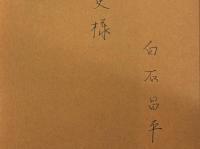 白石昌平
様